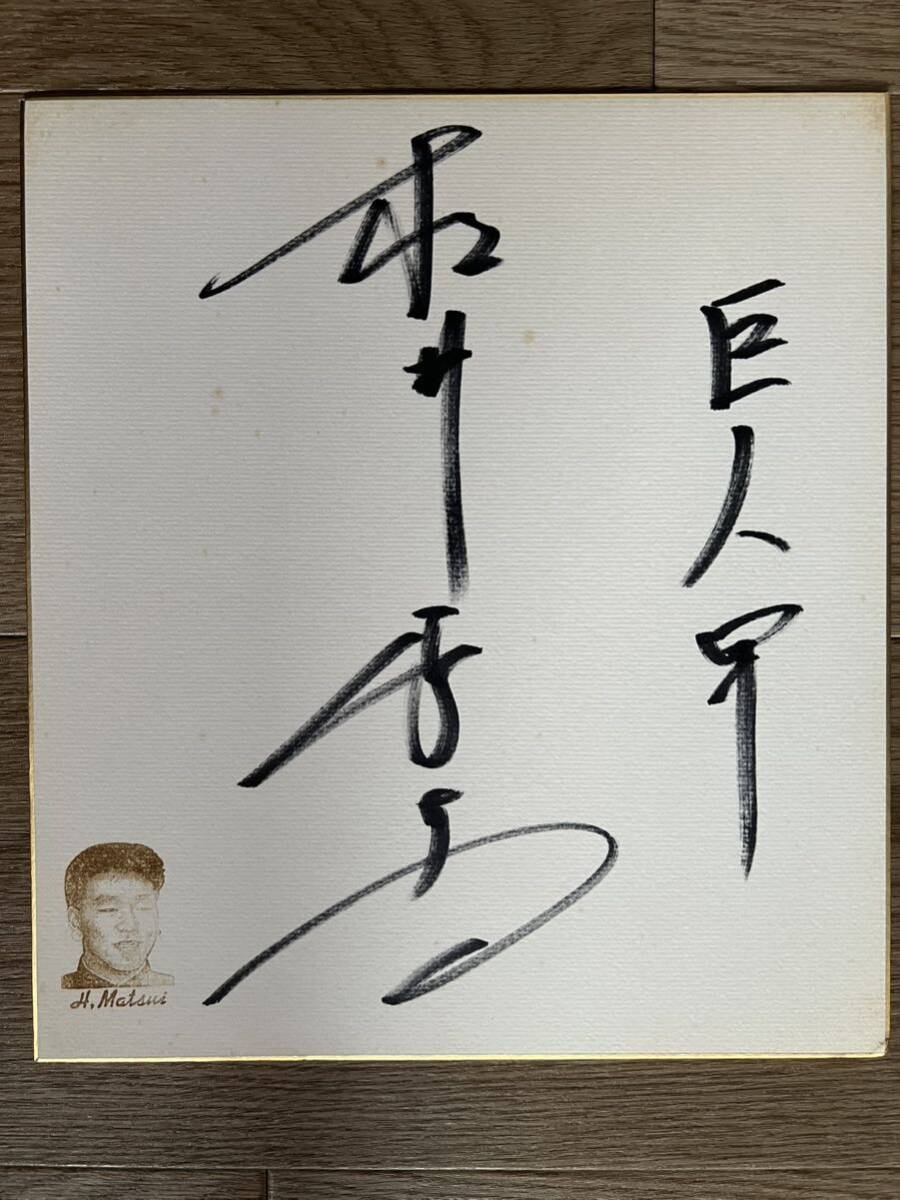 巨人軍
松井秀喜
H. Matsui